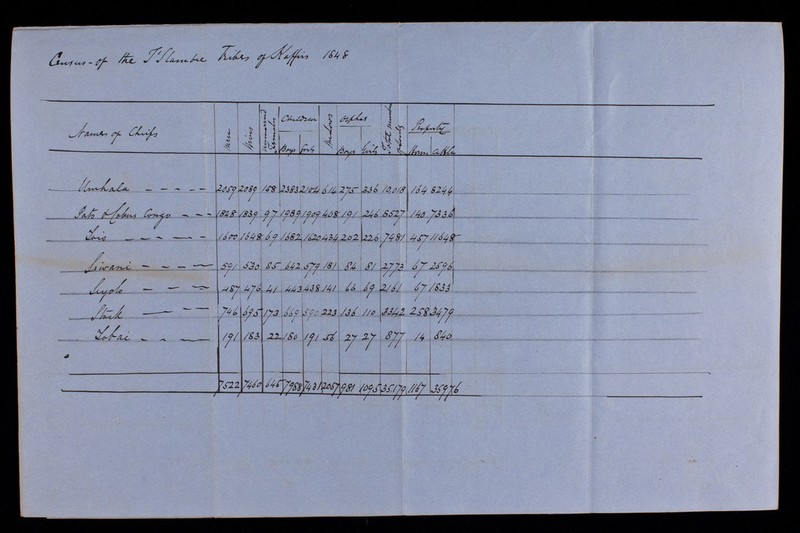 Census - of the T'Slambie Tribes of Kaffirs 1848
Names of Chiefs Men Wives unmarried Females Children Widows Orphans Total number Property
Boys Girls Boys Girls Horses Cattle
Umhala 2059 2089 158 2383 2104 614 275 236 10,018 164 8244
Pato & Cobus Congo 1848 1839 97 1989 1909 408 191 246 8527 140 7336
Tois 1600 1648 69 1682 1620 434 202 226 7481 457 11648
Siwani 591 530 85 642 579 181 84 81 2773 67 2596
Seyolo 487 476 41 443 438 141 66 69 2161 67 1833
Stock 746 695 173 669 590 223 136 110 3342 258 3479
Tobai 191 183 22 180 191 56 27 27 877 14 840
7522 7460 645 7988 7431 2057 981 1095 35179 1167 35976